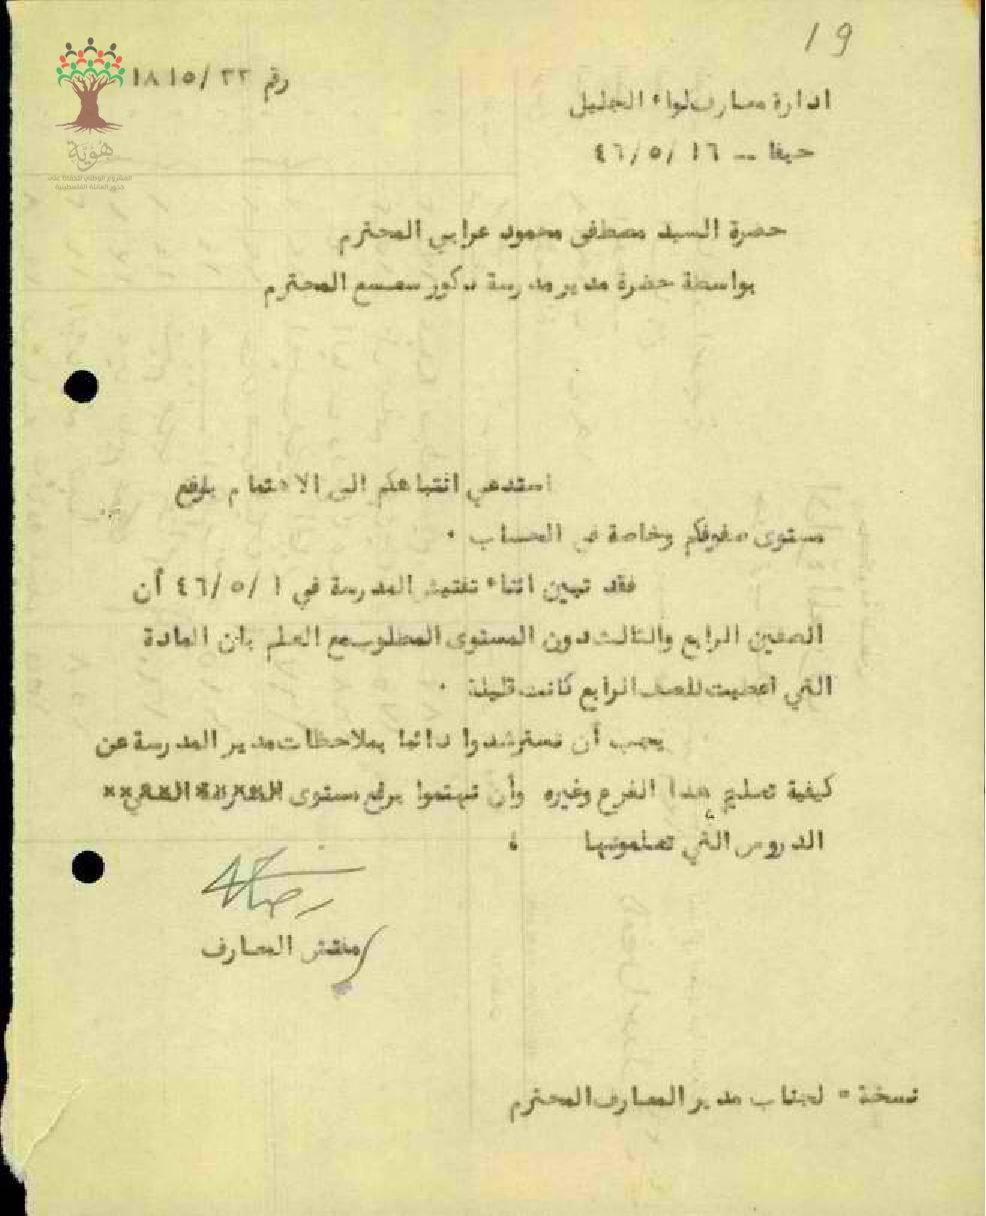 19
رقم ٢٢/١٨١٥
ادارة معارف لواء الجليل
حيفا -- ١٦/٥/٤٦
هوية
المشروع الوطني للحفاظ على
جذور العائلة الفلسطينية
حضرة السيد مصطفى محمود عرابي المحترم
بواسطة حضرة مدير مدرسة ذكور سعسع المحترم
استدعي انتباهكم الى الاهتمام برفع
مستوى صفوفكم وخاصة في الحساب .
فقد تبين اثناء تفتيش المدرسة في ١/٥/٤٦ أن
الصفين الرابع والثالث دون المستوى المطلوب مع العلم بان المادة
التي اعطيت للصف الرابع كانت قليلة .
يجب أن تسترشدوا دائما بملاحظات مدير المدرسة عن
كيفية تعليم هذا الفرع وغيره وأن تهتموا برفع مستوى
الدروس التي تعلمونها .
مفتش المعارف
نسخة = لجناب مدير المعارف المحترم